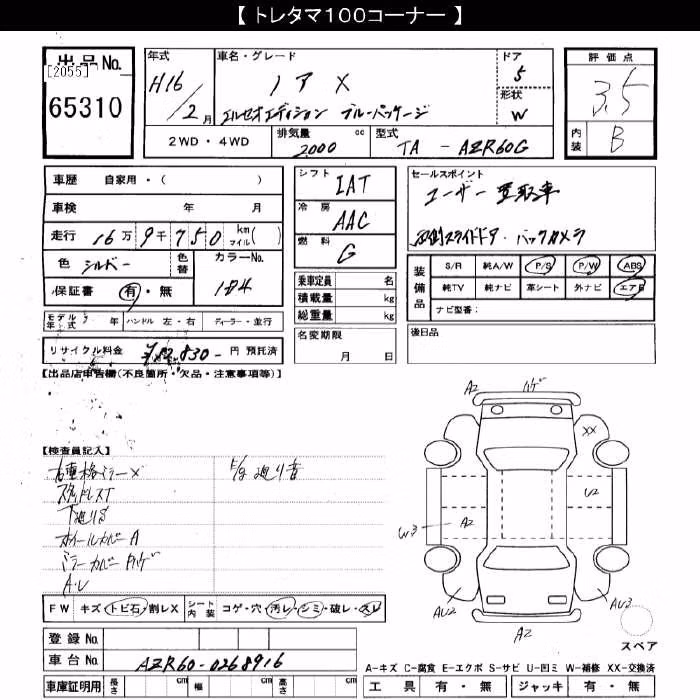 【 トレタマ100コーナー 】
出品No.
[2055]
65310
年式
H16
2月
車名・グレード
ノア X
エルセオエディション ブルーパッケージ
ドア
5
形状
W
評価点
3.5
内装
B
2WD・4WD
排気量
2000 cc
型式
TA - AZR60G
車歴 自家用・( )
車検 年 月
走行 16万 9千 750 km マイル( )
色 シルバー
色替
カラーNo.
184
保証書 有・無
モデル年式 年
ハンドル 左・右
ディーラー・並行
リサイクル料金 ¥12,830- 円 預託済
シフト
IAT
冷房
AAC
燃料
G
乗車定員 名
積載量 kg
総重量 kg
名変期限
月 日
セールスポイント
ユーザー買取車
両側スライドドア・バックカメラ
装備品
S/R 純A/W P/S P/W ABS
純TV 純ナビ 革シート 外ナビ エアB
ナビ型番:
後日品
【出品店申告欄(不良箇所・欠品・注意事項等)】
【検査員記入】
スタッドレスT
下廻り
ホイールカバー A
ミラーカバー
A・U
下廻り音
FW キズ・トビ石・割レX
シート内装 コゲ・穴・汚レ・シミ・破レ・スレ
登録No.
車台No. AZR60-0268916
車庫証明用 長さ cm 幅 cm 高さ cm
A2
ハゲ
XX
U2
A2
W3
AU2
AU3
A2
スペア
A-キズ C-腐食 E-エクボ S-サビ U-凹ミ W-補修 XX-交換済
工具 有・無 ジャッキ 有・無